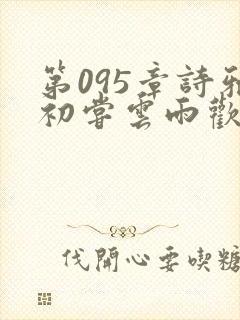 第095章詩雅
初嘗雲雨歡
伐開心要喫糖